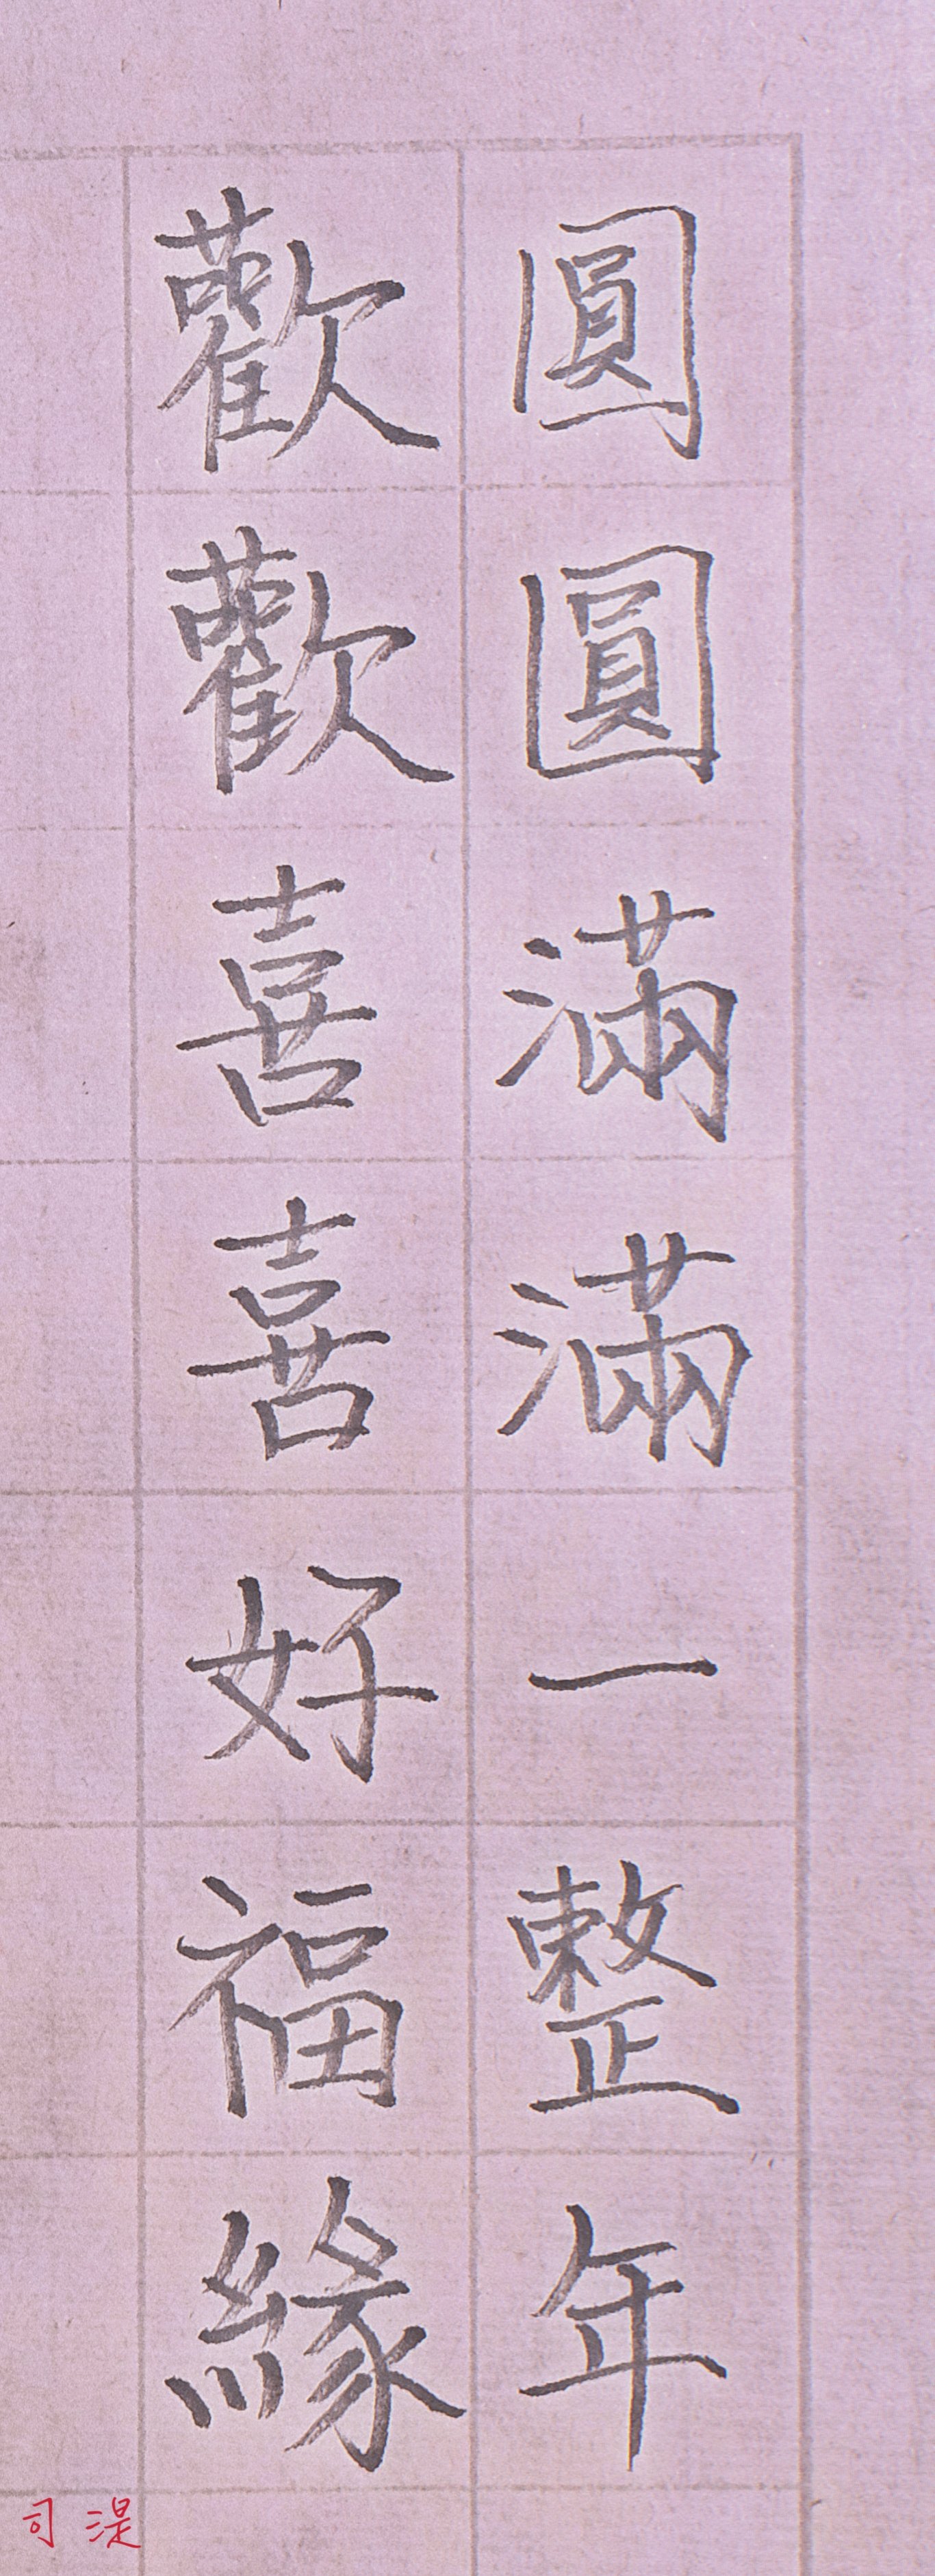 圓圓滿滿一整年
歡歡喜喜好福緣
司湜